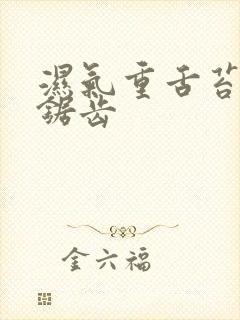 濕氣重舌苔
鋸齿
金六福